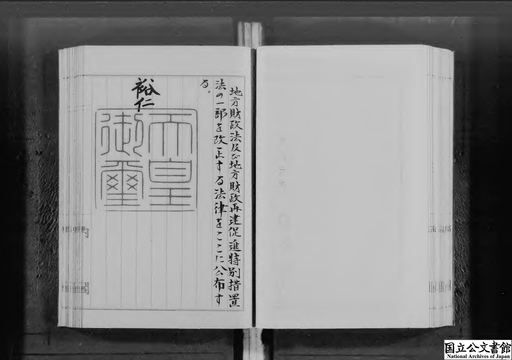 地方財政法及び地方財政再建促進特別措置
法の一部を改正する法律をここに公布す
る。
裕仁
天皇
御璽
国立公文書館
National Archives of Japan